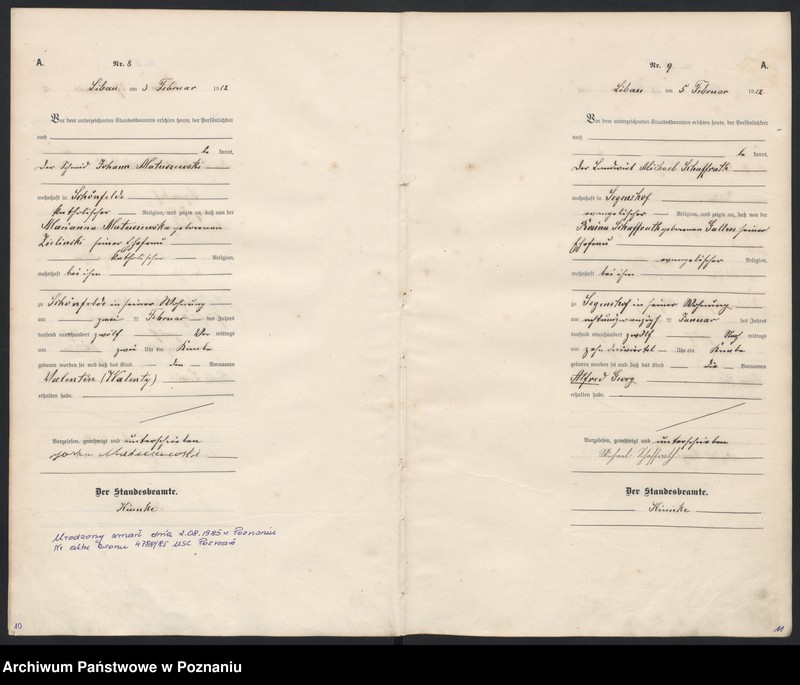 A.
Nr. 8
Libau am 3 Februar 1912
Vor dem unterzeichneten Standesbeamten erschien heute, der Persönlichkeit
nach
be kannt,
der Schmied Johann Matuszewski
wohnhaft in Schönfelde
katholischer Religion, und zeigte an, daß von der
Marianna Matuszewska geborenen
Zielinski seiner Ehefrau
katholischer Religion,
wohnhaft bei ihm
zu Schönfelde in seiner Wohnung
am zwei ten Februar des Jahres
tausend neunhundert zwölf Vor mittags
um zwei Uhr ein Knabe
geboren worden sei und daß das Kind den Vornamen
Valentin (Walenty)
erhalten habe.
Vorgelesen, genehmigt und unterschrieben
Der Standesbeamte.
Urodzony zmarł dnia 2.08.1985 w Poznaniu
Nr aktu zgonu USC Poznań
10
A.
Nr. 9
Libau am 5 Februar 1912
Vor dem unterzeichneten Standesbeamten erschien heute, der Persönlichkeit
nach
be kannt,
der Landwirt Michael Schaffrath
wohnhaft in Segenshof
evangelischer Religion, und zeigte an, daß von der
Schaffrath geborenen seiner
Ehefrau
evangelischer Religion,
wohnhaft bei ihm
zu Segenshof in seiner Wohnung
am achtundzwanzigsten Januar des Jahres
tausend neunhundert zwölf Nach mittags
um zehn dreiviertel Uhr ein Knabe
geboren worden sei und daß das Kind die Vornamen
Alfred Georg
erhalten habe.
Vorgelesen, genehmigt und unterschrieben
Michael Schaffrath
Der Standesbeamte.
11
Archiwum Państwowe w Poznaniu